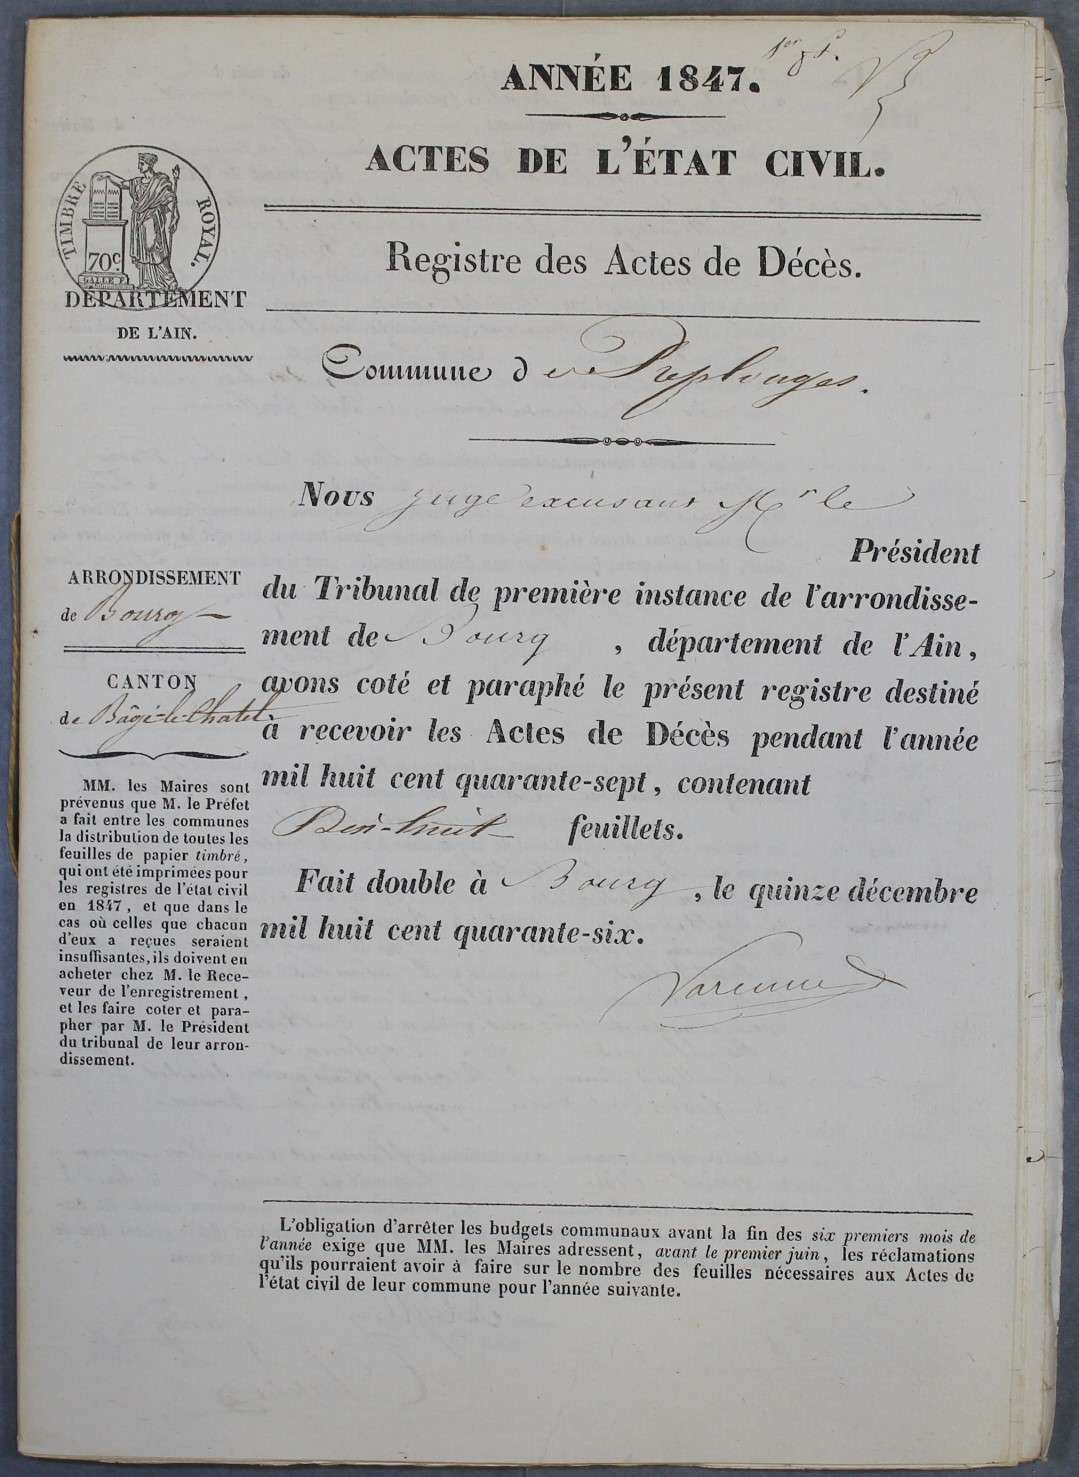 1er f.
ANNÉE 1847.
ACTES DE L'ÉTAT CIVIL.
TIMBRE ROYAL.
70c
DÉPARTEMENT
DE L'AIN.
Registre des Actes de Décès.
Commune de Replonges.
Nous juge excusant Mr le
Président
du Tribunal de première instance de l'arrondisse-
ment de Bourg, département de l'Ain,
avons coté et paraphé le présent registre destiné
à recevoir les Actes de Décès pendant l'année
mil huit cent quarante-sept, contenant
Dix-huit feuillets.
Fait double à Bourg, le quinze décembre
mil huit cent quarante-six.
Varenne
ARRONDISSEMENT
de Bourg
CANTON
de Bâgé-le-Chatel
MM. les Maires sont
prévenus que M. le Préfet
a fait entre les communes
la distribution de toutes les
feuilles de papier timbré,
qui ont été imprimées pour
les registres de l'état civil
en 1847, et que dans le
cas où celles que chacun
d'eux a reçues seraient
insuffisantes, ils doivent en
acheter chez M. le Rece-
veur de l'enregistrement,
et les faire coter et para-
pher par M. le Président
du tribunal de leur arron-
dissement.
L'obligation d'arrêter les budgets communaux avant la fin des six premiers mois de
l'année exige que MM. les Maires adressent, avant le premier juin, les réclamations
qu'ils pourraient avoir à faire sur le nombre des feuilles nécessaires aux Actes de
l'état civil de leur commune pour l'année suivante.